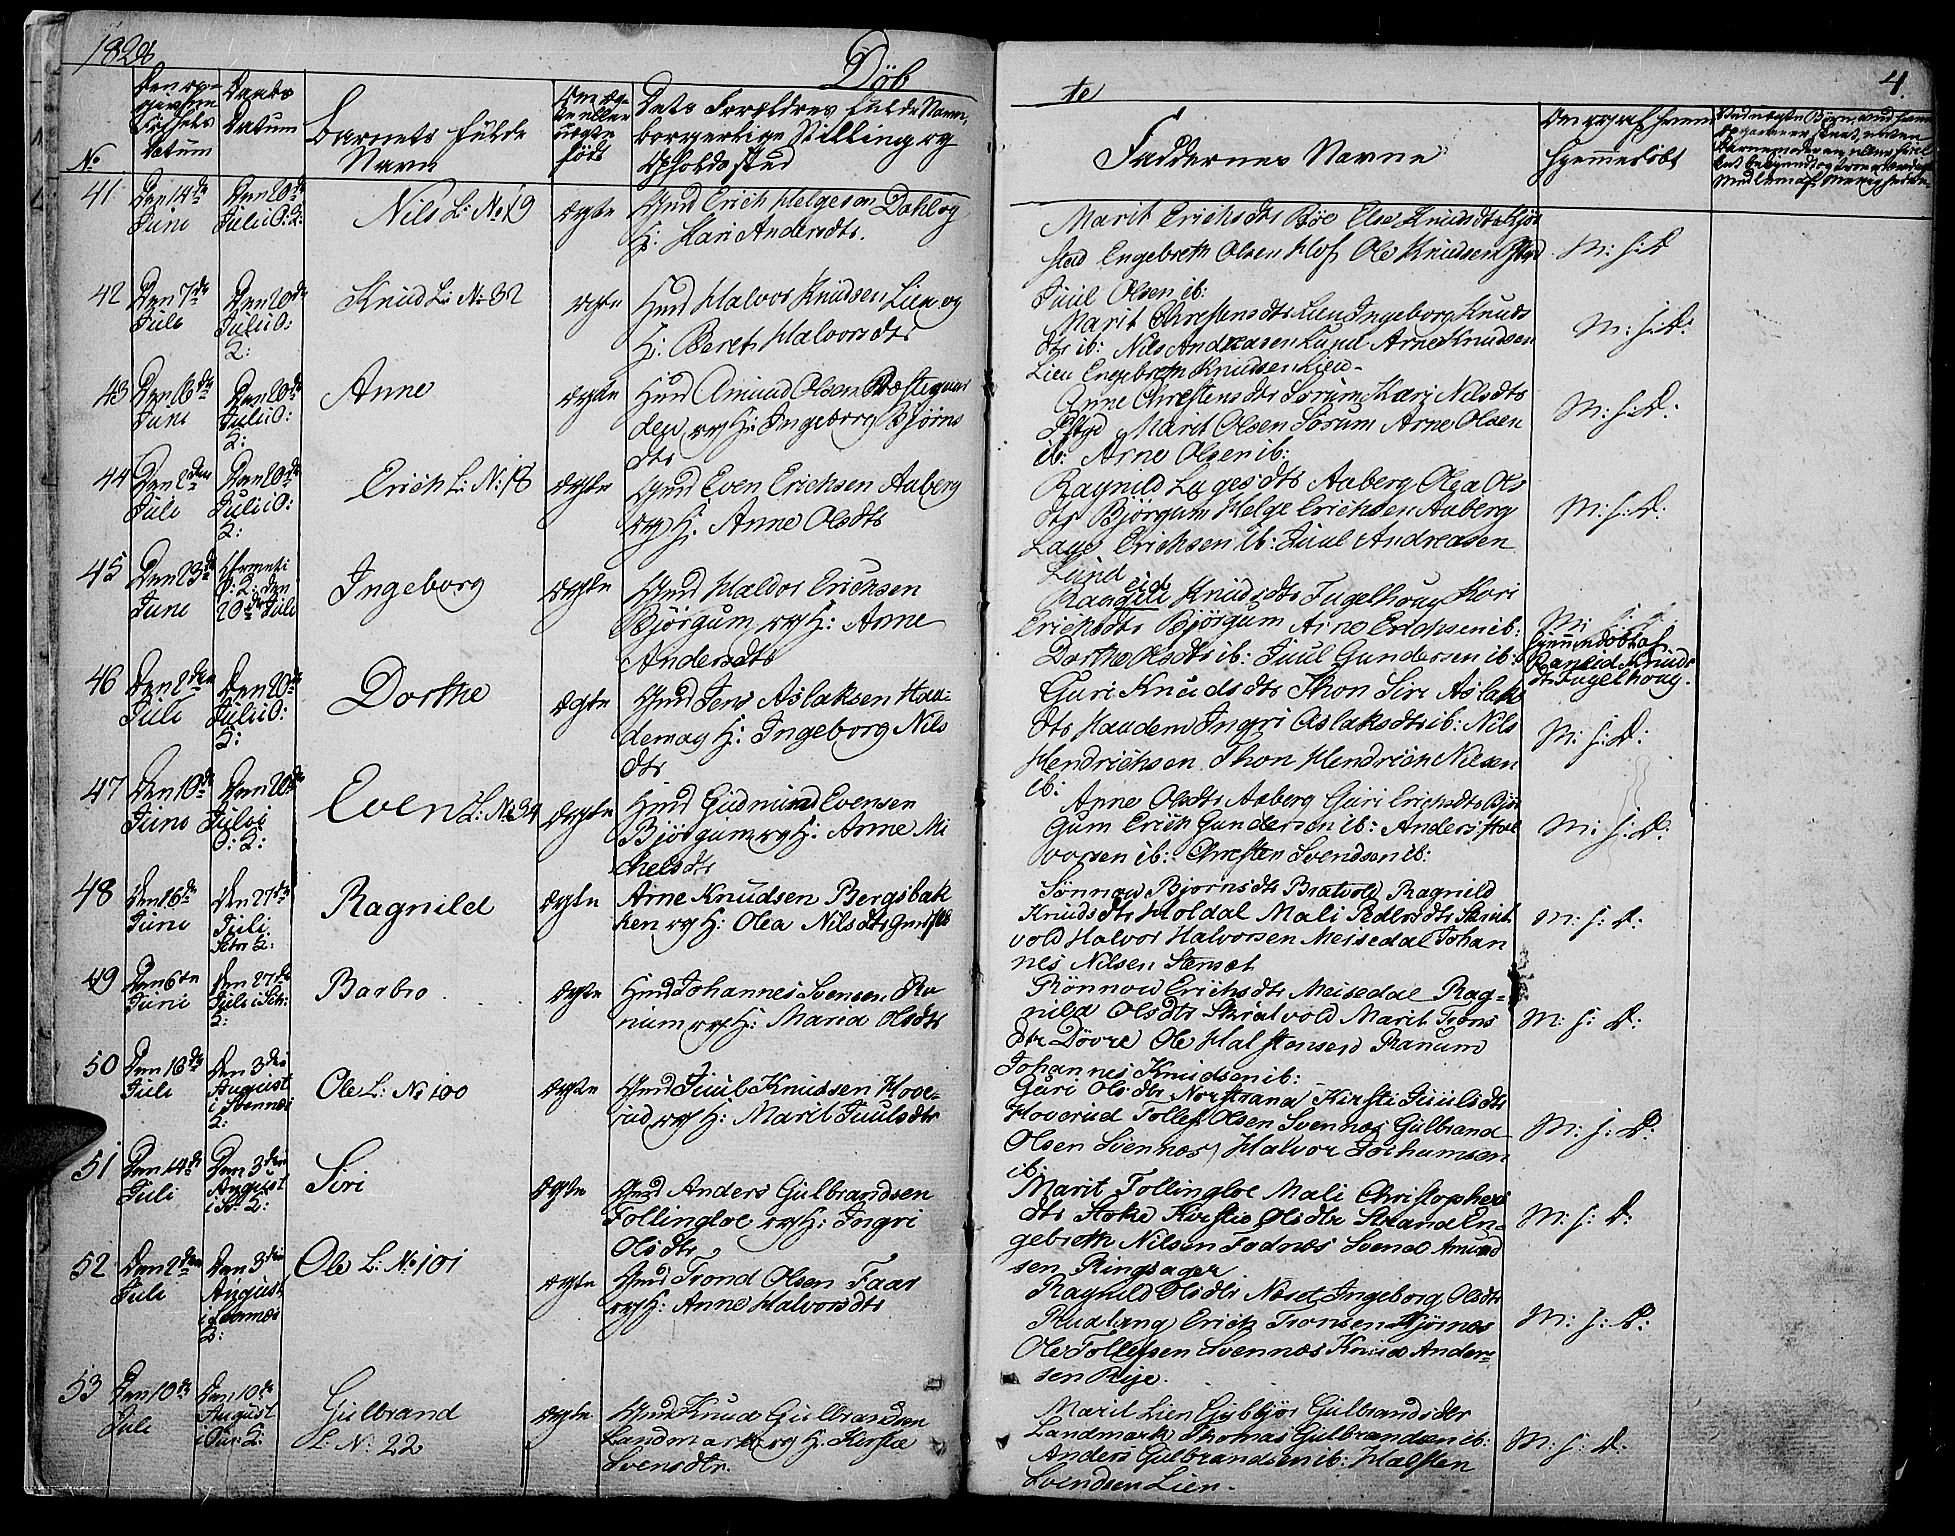 1828
Döb
te
4
No
Den op-
givne
Födsels
Datum
Daabs
Datum
Barnets fulde
Navn
Om Æg-
te eller
uægte
födt
Dets Forældres fulde Navn,
borgerlige Stilling og
Opholdssted
Faddernes Navne
41
Den 14de
Juni
Den 20de
Juli i O: 2:
Nils L: No 19
Ægte
Gmd Erich Helgesen Dahl og
H: Kari Andersdtr.
Marit Erichsdtr Böe Else Knudsdtr
stad Engebreth Olsen Hof Ole Knudsen
Juul Olsen ib:
M: f: D
42
Den 7de
Juli
Den 20de
Juli i O:
2:
Knud L: No 32
ægte
Hmd Halvor Knudsen Lien og
H: Beret Halvorsdtr
Marit Chrestensdtr Lien Ingeborg Knuds
dtr ib: Nils Andreasen Lund Arne Knudsen
Lien Engebreth Knudsen Lien.
M: f: D:
43
Den 6de
Juni
Den 20de
Juli i O:
2:
Anne
ægte
Hmd Amund Olsen Præstegaar
den og H: Ingeborg Björns
dtr
Anne Chrestensdtr Sörum Kari Nilsdtr
Marit Olsen Sörum Arne Olsen
ib: Arne Olsen ib:
M: f: D:
44
Den 2den
Juli
Den 20de
Juli i O:
2:
Erich L: No 18
Ægte
Gmd Even Erichsen Aaberg
og H: Anne Olsdtr
Ragnild Lagesdtr Aaberg Olea Ols
dtr Björgum Helge Erichsen Aaberg
Lage Erichsen ib: Juul Andreasen
Lund
M: f: D:
45
Den 23de
Juni
O: 2: den
20de Juli
Ingeborg
Ægte
Gmd Haldor Erichsen
Björgum og H: Anne
Andersdtr
Knudsdtr Fugelhoug Kari
Erichsdtr Björgum Arne Erichsen ib:
Dorthe Olsdtr ib: Juul Gundersen ib:
M: f: D:
Hjemmedöbt af
Ranild Knuds
dtr Fugelhoug.
46
Den 2den
Juli
Den 20de
Juli i O:
2:
Dorthe
Ægte
Gmd Jens Aslaksen Hau-
dem og H: Ingeborg Nils
dtr
Guri Knudsdtr Thon Siri Aslaks
dtr Haudem Ingri Aslaksdtr ib: Nils
Hendrichsen Thon Hendrich Nilsen
ib:
M: f: D:
47
Den 10de
Juni
Den 20de
Juli i
O: 2:
Even L: No 34
Ægte
Hmd Gudmund Evensen
Björgum og H: Anne Mi
chelsdtr
Anne Olsdtr Aaberg Guri Erichsdtr Björ
gum Erich Gundersen ib: Anders Hal
vorsen ib: Chresten Svendsen ib:
M: f: D:
48
Den 16de
Juni
Den 27de
Juli
2:
Ragnild
Ægte
Arne Knudsen Bergsbak
ken og H: Olea Nilsdtr
Sönnow Bjornsdtr Bratvold Ragnild
Knudsdtr Holdal Mali Pedersdtr Skrut
vold Halvor Halvorsen Meisedal Johan
nes Nilsen Stenset
M: f: D:
49
Den 6te
Juni
Den 27de
Juli i
2:
Barbro
Ægte
Hmd Johannes Svensen Ra
num og H: Maria Olsdtr
Rönnow Erichsdtr Meisedal Rag-
nild Olsdtr Skrutvold Marit Trons
dtr Dövre Ole Halstensen Ranum
Johannes Knudsen ib:
M: f: D:
50
Den 16de
Juli
Den 3die
August
i Svennæs
2:
Ole L: No 100
ægte
Gmd Juul Knudsen Hove-
rud og H: Marit Juulsdtr
Guri Olsdtr Norstrand Kirsti Juulsdtr
Hoverud Tollef Olsen Svennæs Gulbrand
Olsen Svennæs Halvor Jochumsen
ib:
M: f: D:
51
Den 14de
Juli
Den 3die
August
i Sv: 2:
Siri
Ægte
Gmd Anders Gulbrandsen
Follingloe og H: Ingri
Olsdtr
Marit Follingloe Mali Christophers
dtr Stoke Kirstie Olsdtr Strand En-
gebreth Nilsen Fodnæs Svend Amund
sen Ringsager
M: f: D:
52
Den 2den
Juli
Den 3die
August
i Svennæs
2:
Ole L: No 101
ægte
Gmd Trond Olsen Faar
og H: Anne Halvorsdtr
Ragnild Olsdtr Næset Ingeborg Olsdtr
Rudlang Erich Tronsen
Ole Tollefsen Svennæs Knud Ander-
sen Rije.
M: f: D:
53
Den 10de
Juli
Den 10de
August
2:
Gulbrand
L: No: 22
ægte
Gmd Knud Gulbrandsen
Landmark og H: Kirstie
Svensdtr.
Marit Lien Gulbrandsdtr
Landmark Thomas Gulbrandsen ib:
Anders Gulbrandsen ib: Halsten
Svendsen Lien.
M: f: D: